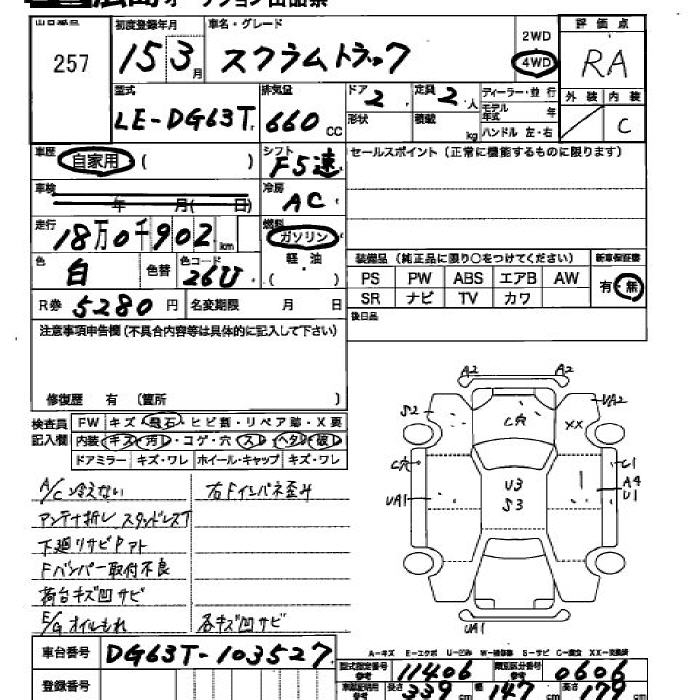 広島オークション出品票
出品番号
257
初度登録年月
15 3月
車名・グレード
スクラムトラック
2WD
4WD
評価点
RA
外装 内装
C
型式
LE-DG63T
排気量
660 CC
ドア
2
定員
2人
形状
積載 kg
ディーラー・並行
モデル年式 年
ハンドル 左・右
車歴
自家用 ( )
シフト
F5速
セールスポイント (正常に機能するものに限ります)
車検
年 月( 日)
冷房
AC
走行
18万0千902km
燃料
ガソリン
軽油
( )
色
白
色替
色コード
26U
装備品 (純正品に限り○をつけてください)
新車保証書
PS PW ABS エアB AW
有・無
SR ナビ TV カワ
R券 5280円
名変期限 月 日
後日品
注意事項申告欄(不具合内容等は具体的に記入して下さい)
修復歴 有 〔箇所 〕
検査員記入欄
FW キズ・飛石・ヒビ割・リペア跡・X要
内装・キズ・汚レ・コゲ・穴・スレ・ヘタレ・破レ
ドアミラー キズ・ワレ ホイール・キャップ キズ・ワレ
A/C冷えない
右Fインパネ歪み
アンテナ折レ
下廻りサビ
Fバンパー取付不良
荷台キズ凹サビ
E/Gオイルもれ
各キズ凹サビ
A2 A2
S2 C穴 UA2
XX
C穴 U3 C1
UA1 S3 A4
U1
UA1
A-キズ E-エクボ U-凹み W-補修跡 S-サビ C-腐食 XX-交換済
車台番号
DG63T-103527
型式指定番号 参考
11406
類別区分番号 参考
0606
登録番号
車庫証明用 参考
長さ 339cm
幅 147cm
高さ 178cm